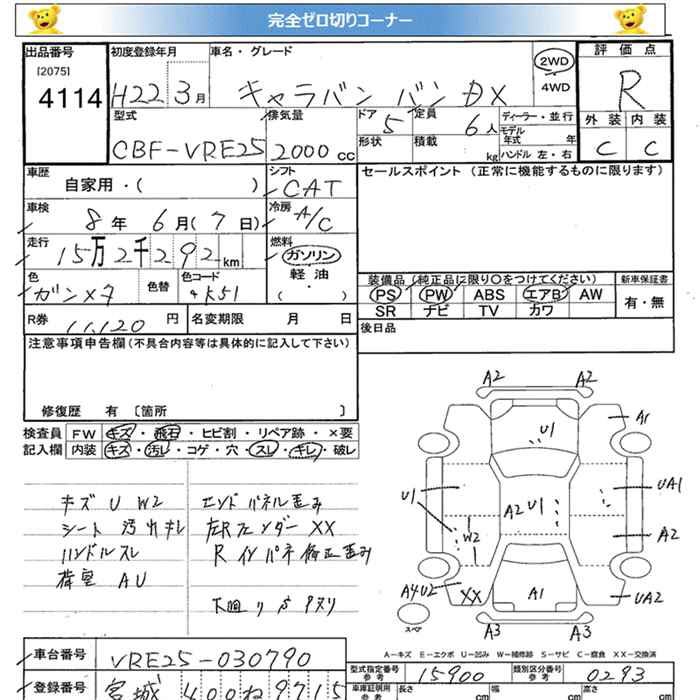 完全ゼロ切りコーナー
出品番号 初度登録年月 車名・グレード 評価点
[2075] 4114 H22 3月 キャラバン バン DX 2WD 4WD R
型式 排気量 ドア 定員 ディーラー・並行 外装 内装
CBF-VRE25 2000cc 5 6人 モデル年式 年 C C
形状 積載 kg ハンドル 左・右
車歴 シフト セールスポイント (正常に機能するものに限ります)
自家用・( ) CAT
車検 冷房
8年 6月(7日) A/C
走行 燃料
15万2千292km ガソリン
軽油
( ・ )
色 色替 色コード 装備品 (純正品に限り○をつけてください) 新車保証書
ガンメタ K51 PS PW ABS エアB AW 有・無
SR ナビ TV カワ
R券 11,120円 名変期限 月 日 後日品
注意事項申告欄(不具合内容等は具体的に記入して下さい)
修復歴 有 〔箇所 〕
検査員 FW キズ・飛石・ヒビ割・リペア跡・×要
記入欄 内装 キズ・汚レ・コゲ・穴・スレ・キレ・破レ
キズ U W2 エンドパネル歪み
シート 汚れキレ 左Rフェンダー XX
ハンドルスレ R インパネ修正歪み
荷室 AU
下廻りサビ
A2 A2
U1 A1
U1 A2 U1 UA1
W2 A2
A4U2 XX A1 UA2
スペア A3 A3
A-キズ E-エクボ U-凹み W-補修跡 S-サビ C-腐食 XX-交換済
車台番号 VRE25-030790 型式指定番号 参考 15900 類別区分番号 参考 0293
登録番号 宮城 400 ね 9715 車庫証明用 参考 長さ cm 幅 cm 高さ cm